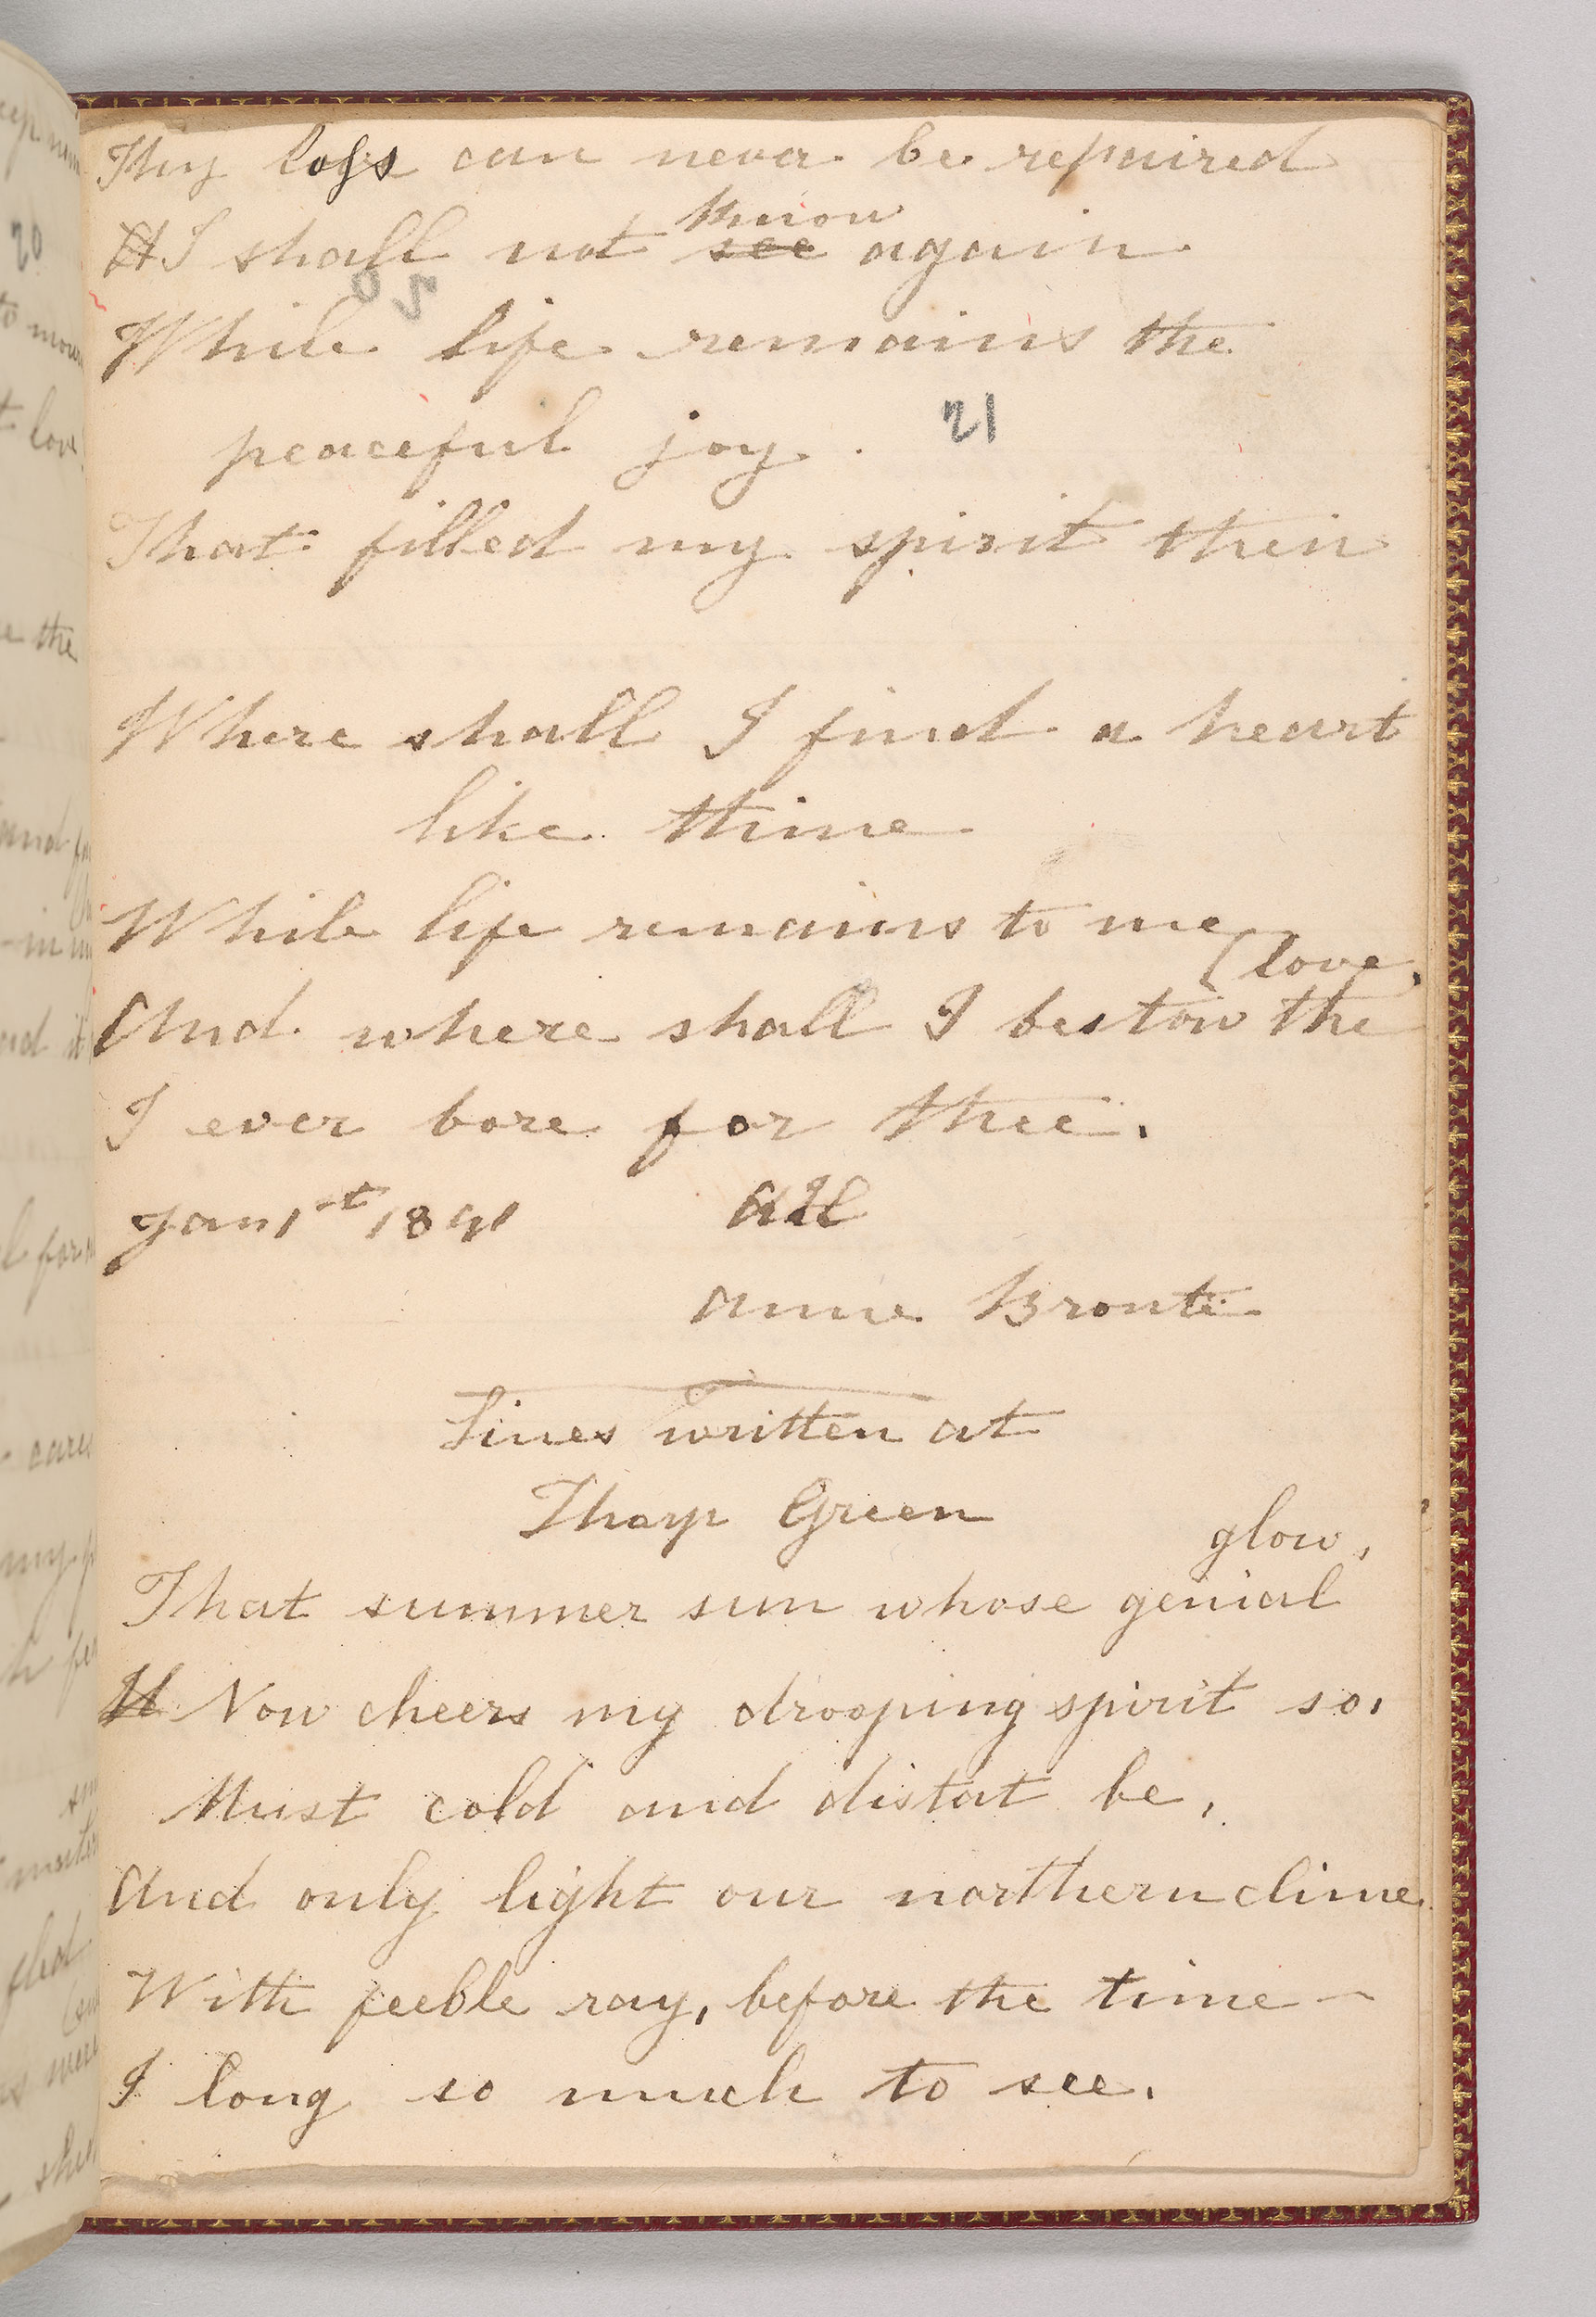 Thy loss can never be repaired
I shall not see know again
While life remains the
peaceful joy.
21
That filled my spirit then
Where shall I find a heart
like thine
While life remains to me
And where shall I bestow the (love,
I ever bore for thee.
Jan 1st 1841
AH
Anne Brontë
Lines written at
Thorp Green
That summer sun whose genial glow,
Now cheers my drooping spirit so,
Must cold and distat be,
And only light our northern clime
With feeble ray, before the time—
I long so much to see.
20
the
love
and
my